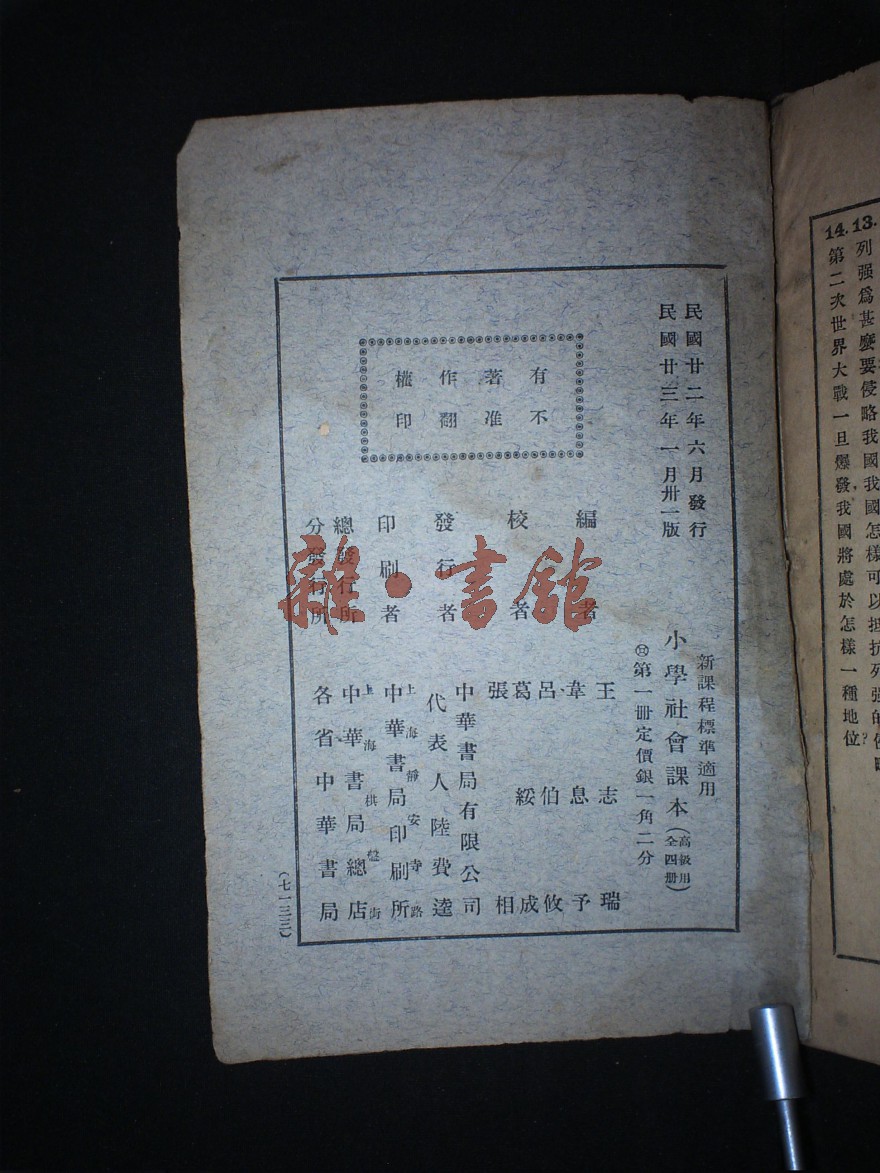 13. 列强爲甚麽要侵略我國我國怎樣可以抵抗列强的侵略
14. 第二次世界大戰一旦爆發我國將處於怎樣一種地位?
民國廿二年六月發行
民國廿三年一月卅一版
新課程標準適用
小學社會課本(高級用全四册)
第一册定價銀一角二分
有著作權
不准翻印
編者 王志瑞
韋息予
校者 呂伯攸
葛綏成
張相
發行者 中華書局有限公司
代表人陸費逵
印刷者 上海靜安寺路
中華書局印刷所
總發行所 上海棋盤街
中華書局總店
分發行所 各省中華書局
(七一三三)
雜·書館